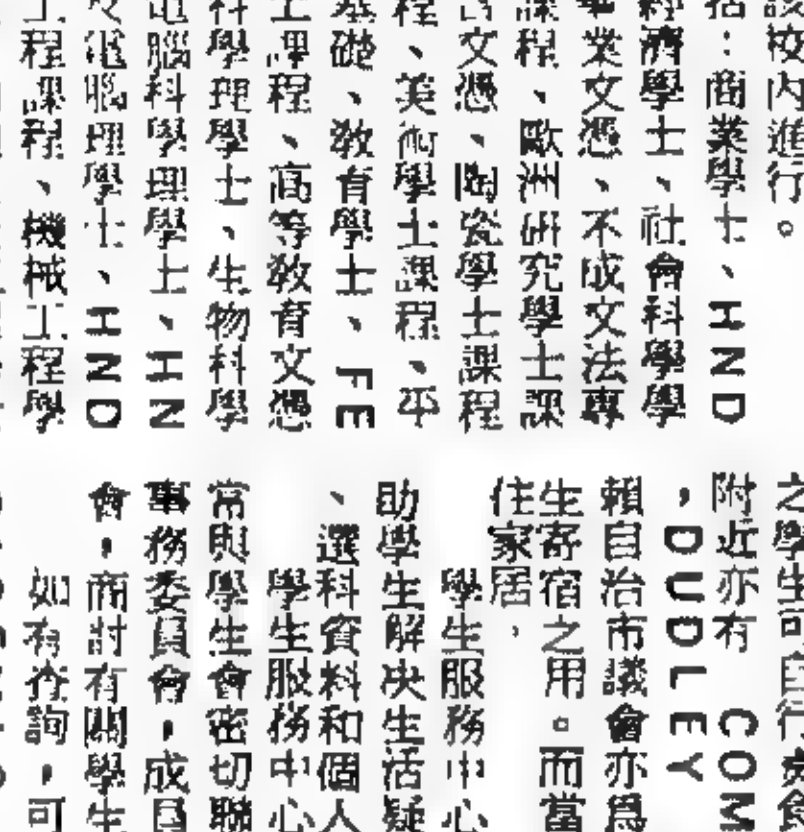 該校內進行。
括：商業學士、HND
經濟學士、社會科學學
畢業文憑、不成文法專
課程、歐洲研究學士課
文憑、陶瓷學士課程
程、美術學士課程、平
基礎、敎育學士、FE
士課程、高等敎育文憑
科學理學士、生物科學
電腦科學理學士、HN
及電腦理學士、HND
工程課程、機械工程學
之學生可自行煮食
附近亦有 COM
，DUDLEY
賴自治市議會亦爲
生寄宿之用。而當
住家居，
學生服務中心
助學生解決生活疑
、選科資料和個人
學生服務中心
常與學生會密切聯
事務委員會，成員
會，商討有關學生
如有查詢，可